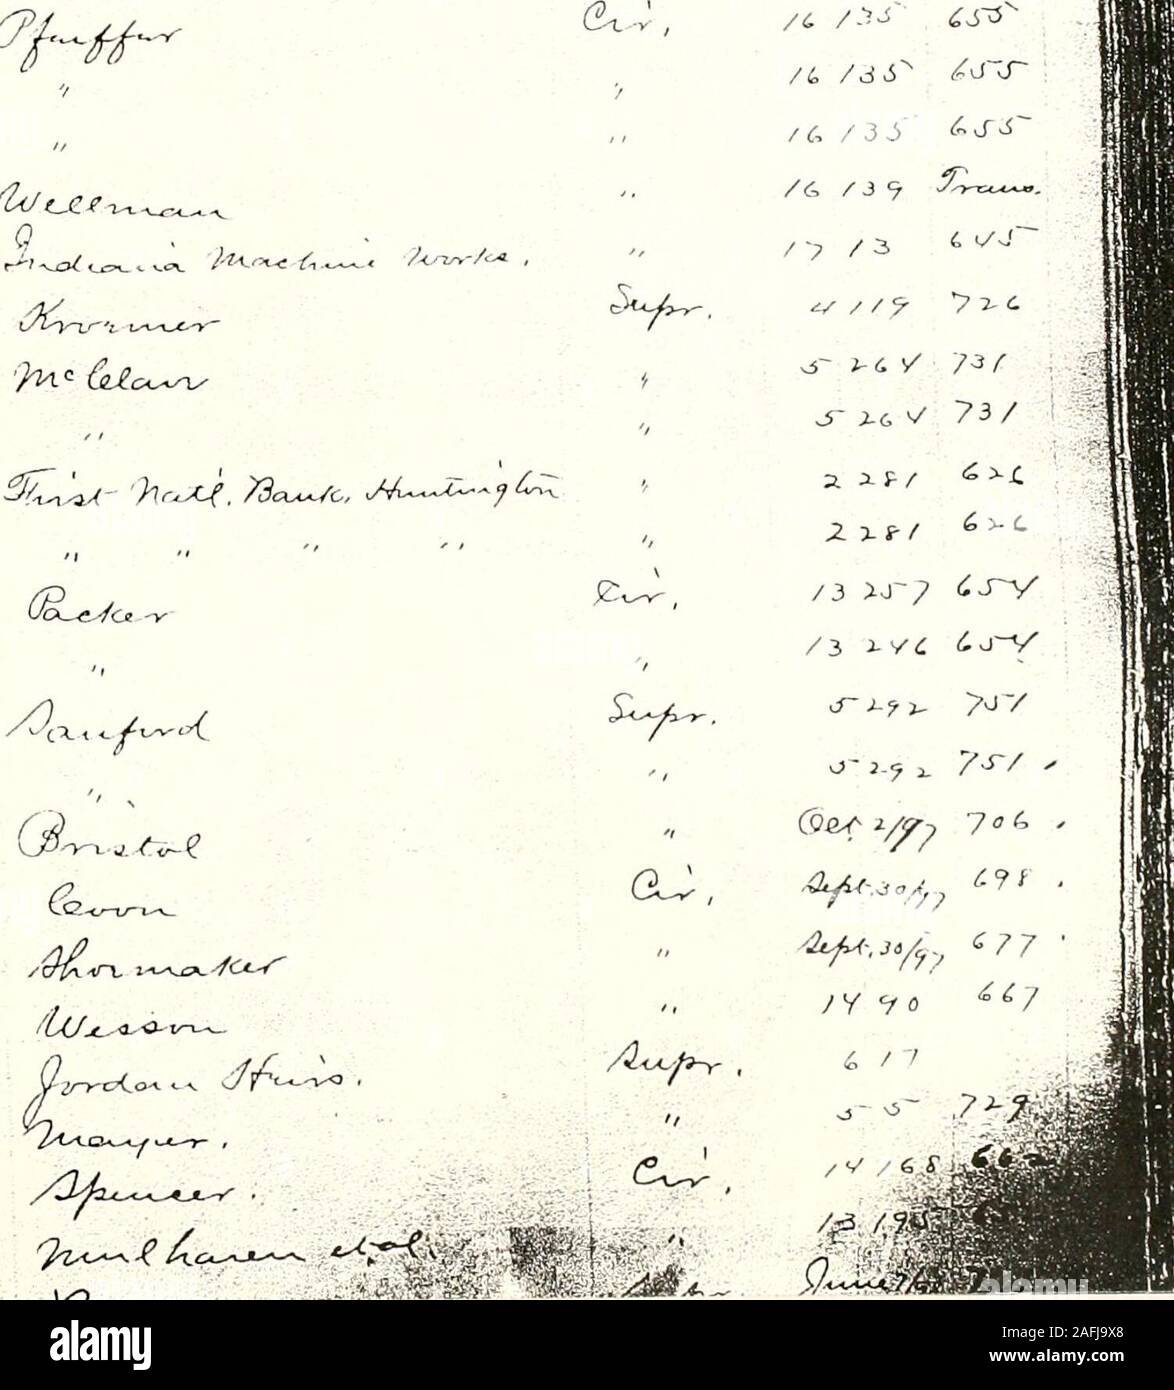 Pfeiffer Cir, 16 135 655
" " 16 135 655
" " 16 135 655
Wellman " 16 139 Trans.
Indiana Machine Works, " 17 13 645
Kromer Supr. 4 119 726
McClain " 5 264 731
" " 5 264 731
First Natl. Bank, Huntington " 2 281 626
" " " " " 2 281 626
Packer Cir, 13 257 654
" " 13 246 654
Sanford Supr. 5 292 751
" " 5 292 751
Bristol " Oct. 2/97 706
Coon Cir, Sept. 30/97 698
Shoemaker " Sept. 30/97 677
Wesson " 14 90 667
Jordan Heirs. Supr. 6 17
Mayer. " 5 5 729
Spencer. Cir, 14 168 662
Mulharen et al. " 13 195
alamy
Image ID: 2AFJ9X8
www.alamy.com